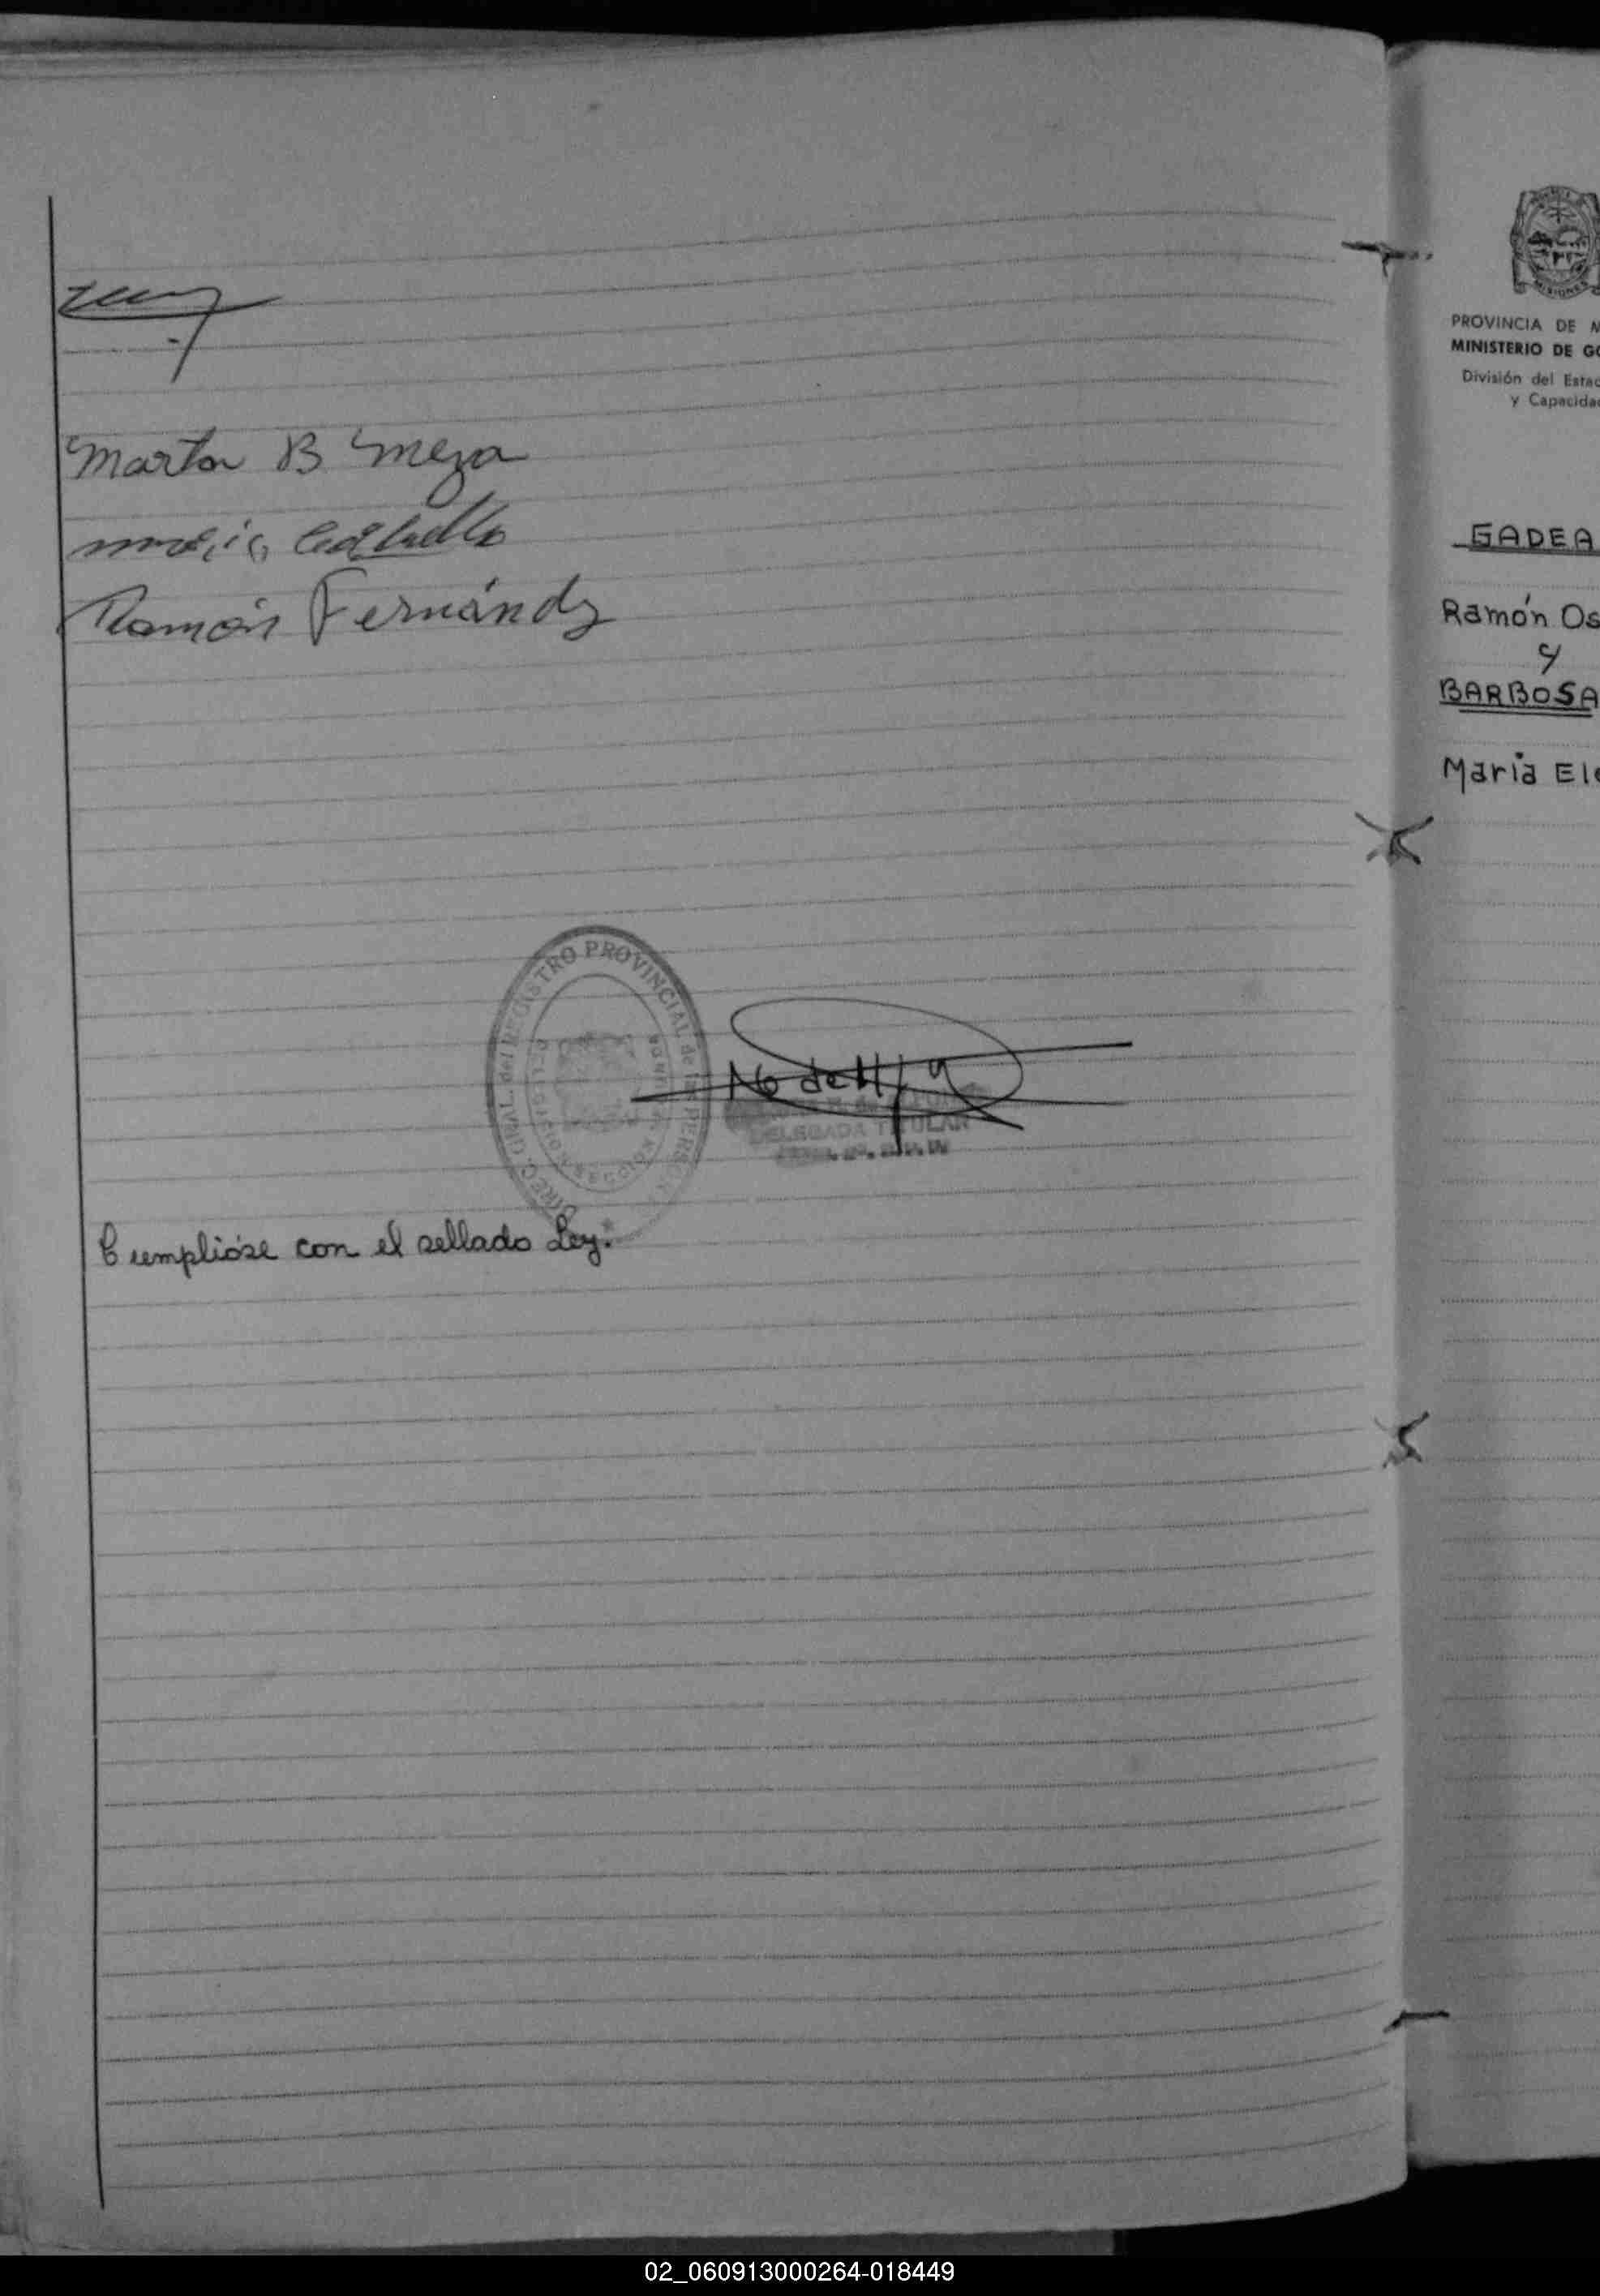 Marta B Meza
Ramón Fernández
DIREC. GRAL. del REGISTRO PROVINCIAL de las PERS
DELEGACION SECCION
DELEGADA TITULAR
Cumplióse con el sellado Ley.
MISIONES
PROVINCIA DE M
MINISTERIO DE GO
División del Estad
y Capacidad
GADEA
Ramón Os
y
BARBOSA
Maria Ele
02_060913000264-018449